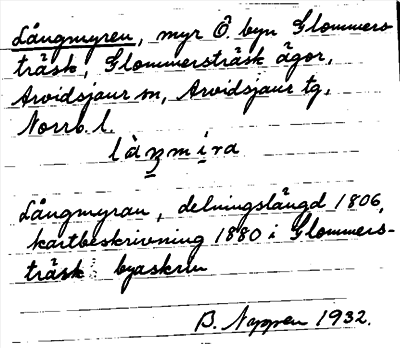 Långmyren, myr Ö. byn Glommers-
träsk, Glommersträsk ägor,
Arvidsjaur sn, Arvidsjaur tg,
Norrb. l.
làŋmi̠ra
Långmyran, delningslängd 1806,
kartbeskrivning 1880 i Glommers-
träsk byaskrin
B. Nappen 1932.